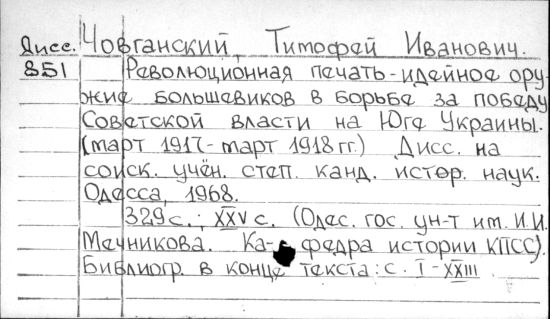 Дисс. Човганский, Тимофей Иванович.
851 Революционная печать - идейное ору-
жие большевиков в борьбе за победу
Советской власти на Юге Украины.
(март 1917 - март 1918 гг.) Дисс. на
соиск. учён. степ. канд. истор. наук.
Одесса, 1968.
329 с.; XXV с. (Одес. гос. ун-т им. И.И.
Мечникова. Ка- федра истории КПСС).
Библиогр. в конце текста: с. I - XXIII.